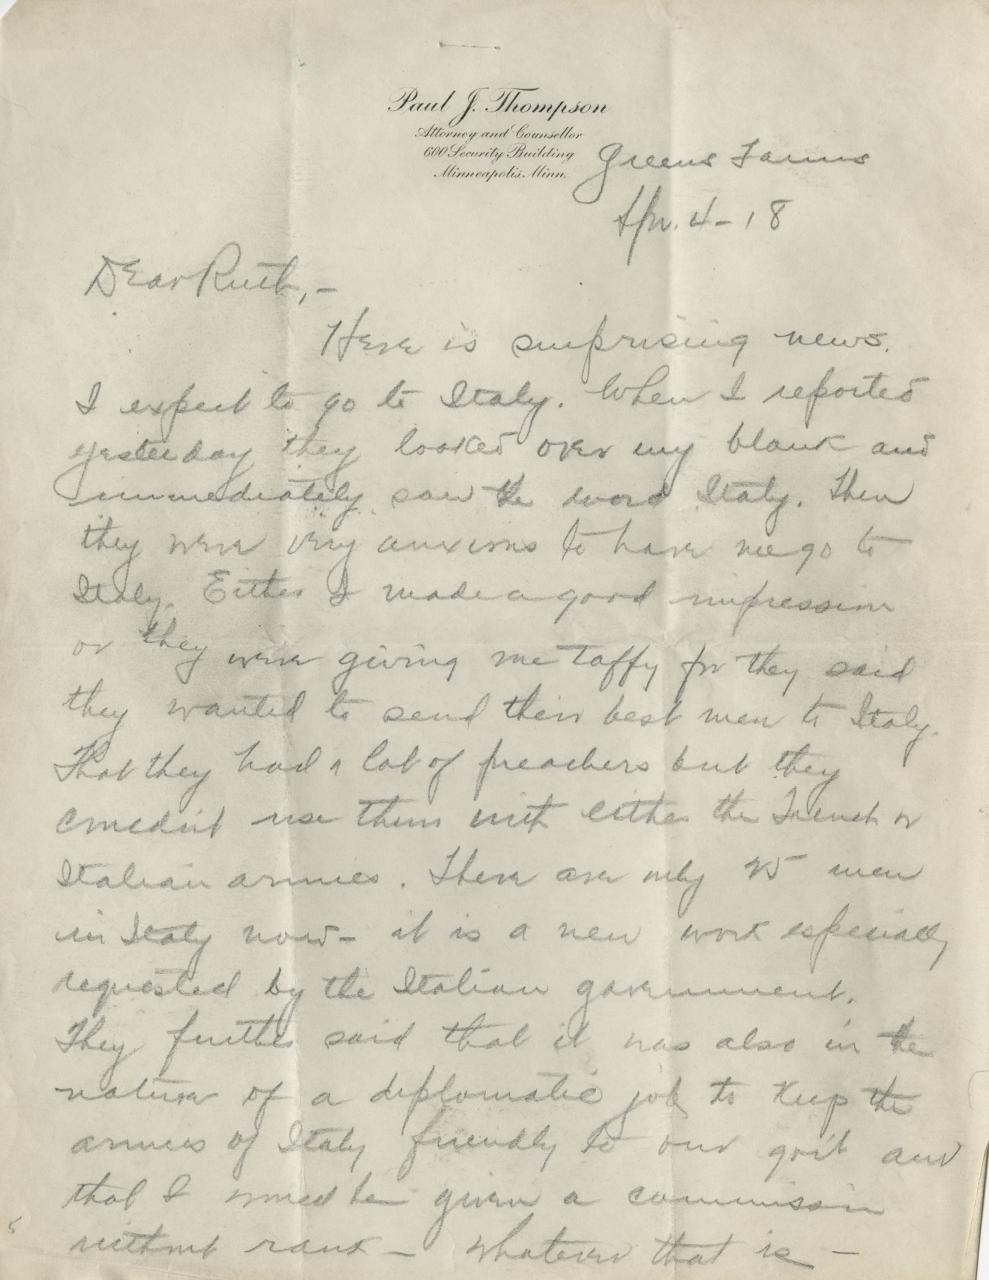 Paul J. Thompson
Attorney and Counsellor
600 Security Building
Minneapolis, Minn.
Greens Farms
Apr. 4-18
Dear Ruth,-
Here is surprising news.
I expect to go to Italy. When I reported
yesterday they looked over my blank and
immediately saw the word Italy. Then
they were very anxious to have me go to
Italy. Either I made a good impression
or they were giving me taffy for they said
they wanted to send their best men to Italy.
That they had a lot of preachers but they
couldn't use them with either the French or
Italian armies. There are only 25 men
in Italy now- it is a new work especially
requested by the Italian government.
They further said that it was also in the
nature of a diplomatic job to keep the
armies of Italy friendly to our gov't and
that I would be given a commission
without rank - whatever that is -